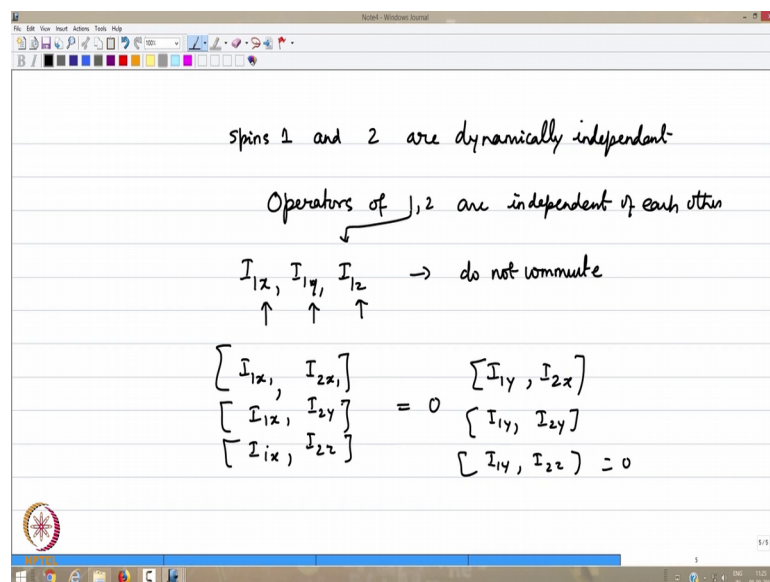 Note4 - Windows Journal
File Edit View Insert Actions Tools Help
100%
B I
spins 1 and 2 are dynamically independent
Operators of 1,2 are independent of each other
I1x, I1y, I1z → do not commute
↑ ↑ ↑
[I1x, I2x] [I1y, I2x]
[I1x, I2y] = 0 [I1y, I2y]
[I1x, I2z] [I1y, I2z] = 0
5/5
5
NPTEL
ENG 11:25